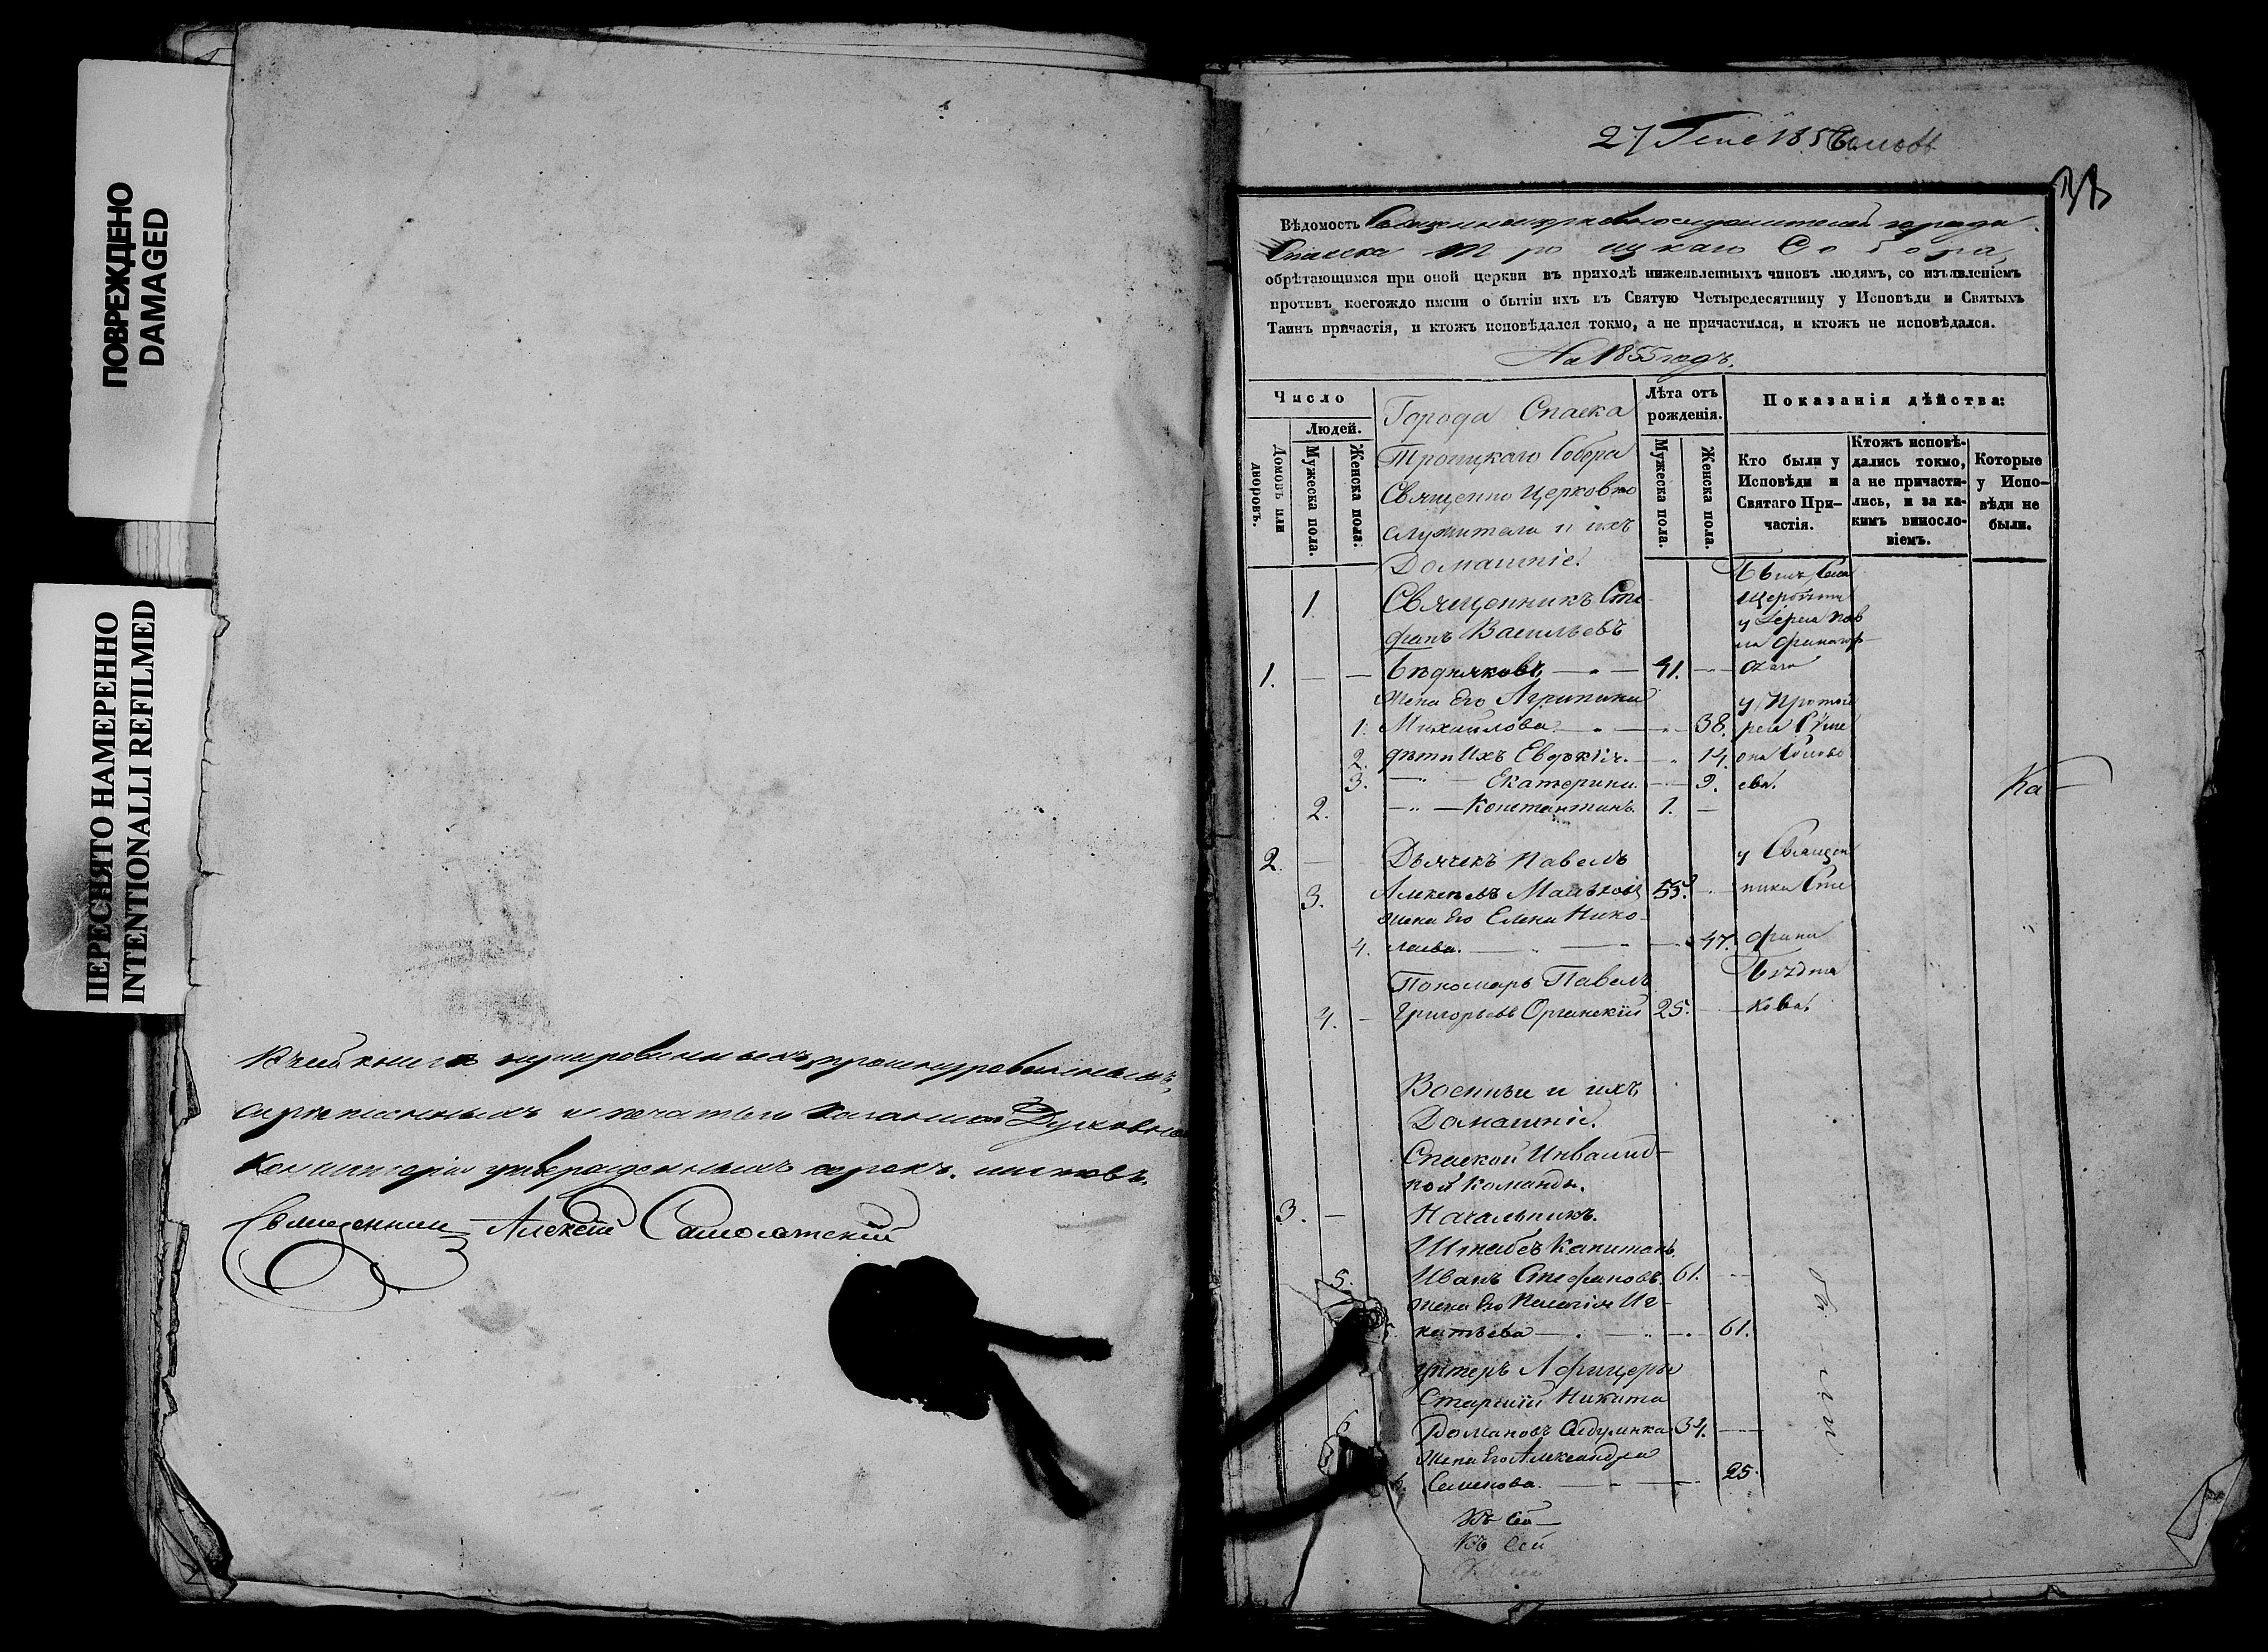 ПОВРЕЖДЕНО
DAMAGED
ПЕРЕСНЯТО НАМЕРЕННО
INTENTIONALLI REFILMED
Въ сей книге нумерованныхъ, прошнурованныхъ,
скрепленныхъ и печатью Казанской Духовной
Консисторіи утвержденныхъ сорокъ листовъ.
Священникъ Алексей
27 1856
Вѣдомость Священноцерковнослужителей города
Спасска Троицкаго Собора,
обрѣтающимся при оной церкви въ приходѣ нижеявленныхъ чиновъ людямъ, со изъявленіемъ
противъ коегождо имени о бытіи ихъ въ Святую Четыредесятницу у Исповѣди и Святыхъ
Таинъ причастія, и ктожъ исповѣдался токмо, а не причастился, и ктожъ не исповѣдался.
На 1855 годъ.
Число
Людей.
Домовъ или дворовъ.
Мужеска пола.
Женска пола.
Города Спаска
Троицкаго Собора
Священно церковно
служители и ихъ
Домашніе.
Лѣта отъ рожденія.
Мужеска пола.
Женска пола.
Показанія дѣйства:
Кто были у Исповѣди и Святаго При-
частія.
Ктожъ исповѣ-
дались токмо,
а не причасти-
лись, и за ка-
кимъ виносло-
віемъ.
Которые
у Испо-
вѣди не
были.
1. Священникъ Сте
фанъ Васильевъ
1. — — Бедняковъ — 41. —
Жена его Агрипина
1. Михайлова — 38.
2. дети Ихъ Евдокія. — 14.
3. — Екатерина. — 9.
2. — Константинъ. 1. —
у Протоіе
рея
2. — Дьячекъ Павелъ
3. Алексеевъ 55. —
жена его Елена Нико
4. лаева. — 47.
у Священ
ника Сте
фана
Бедня
кова.
Пономарь Павелъ
4. — Григорьевъ 25. —
Ка
Военныи и ихъ
Домашніе.
Спаской Инвалид-
ной Команды.
3. — Начальникъ.
Штабсъ Капитанъ
5. Иванъ Стефановъ 61. —
жена его Пелагія Иг-
натьева — 61.
Унтеръ Афицеры
Старшій Никита
6 Романовъ 34. —
Жена Его Александра
6. Семенова. — 25.
Къ сей
Къ сей